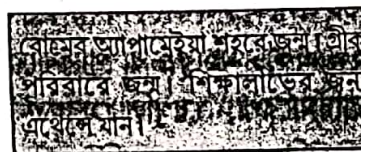 রোমের অ্যাপামেইয়া শহরে জন্ম। গ্রীক
পরিবারে জন্ম। শিক্ষালাভের জন্য
এথেন্সে যান।